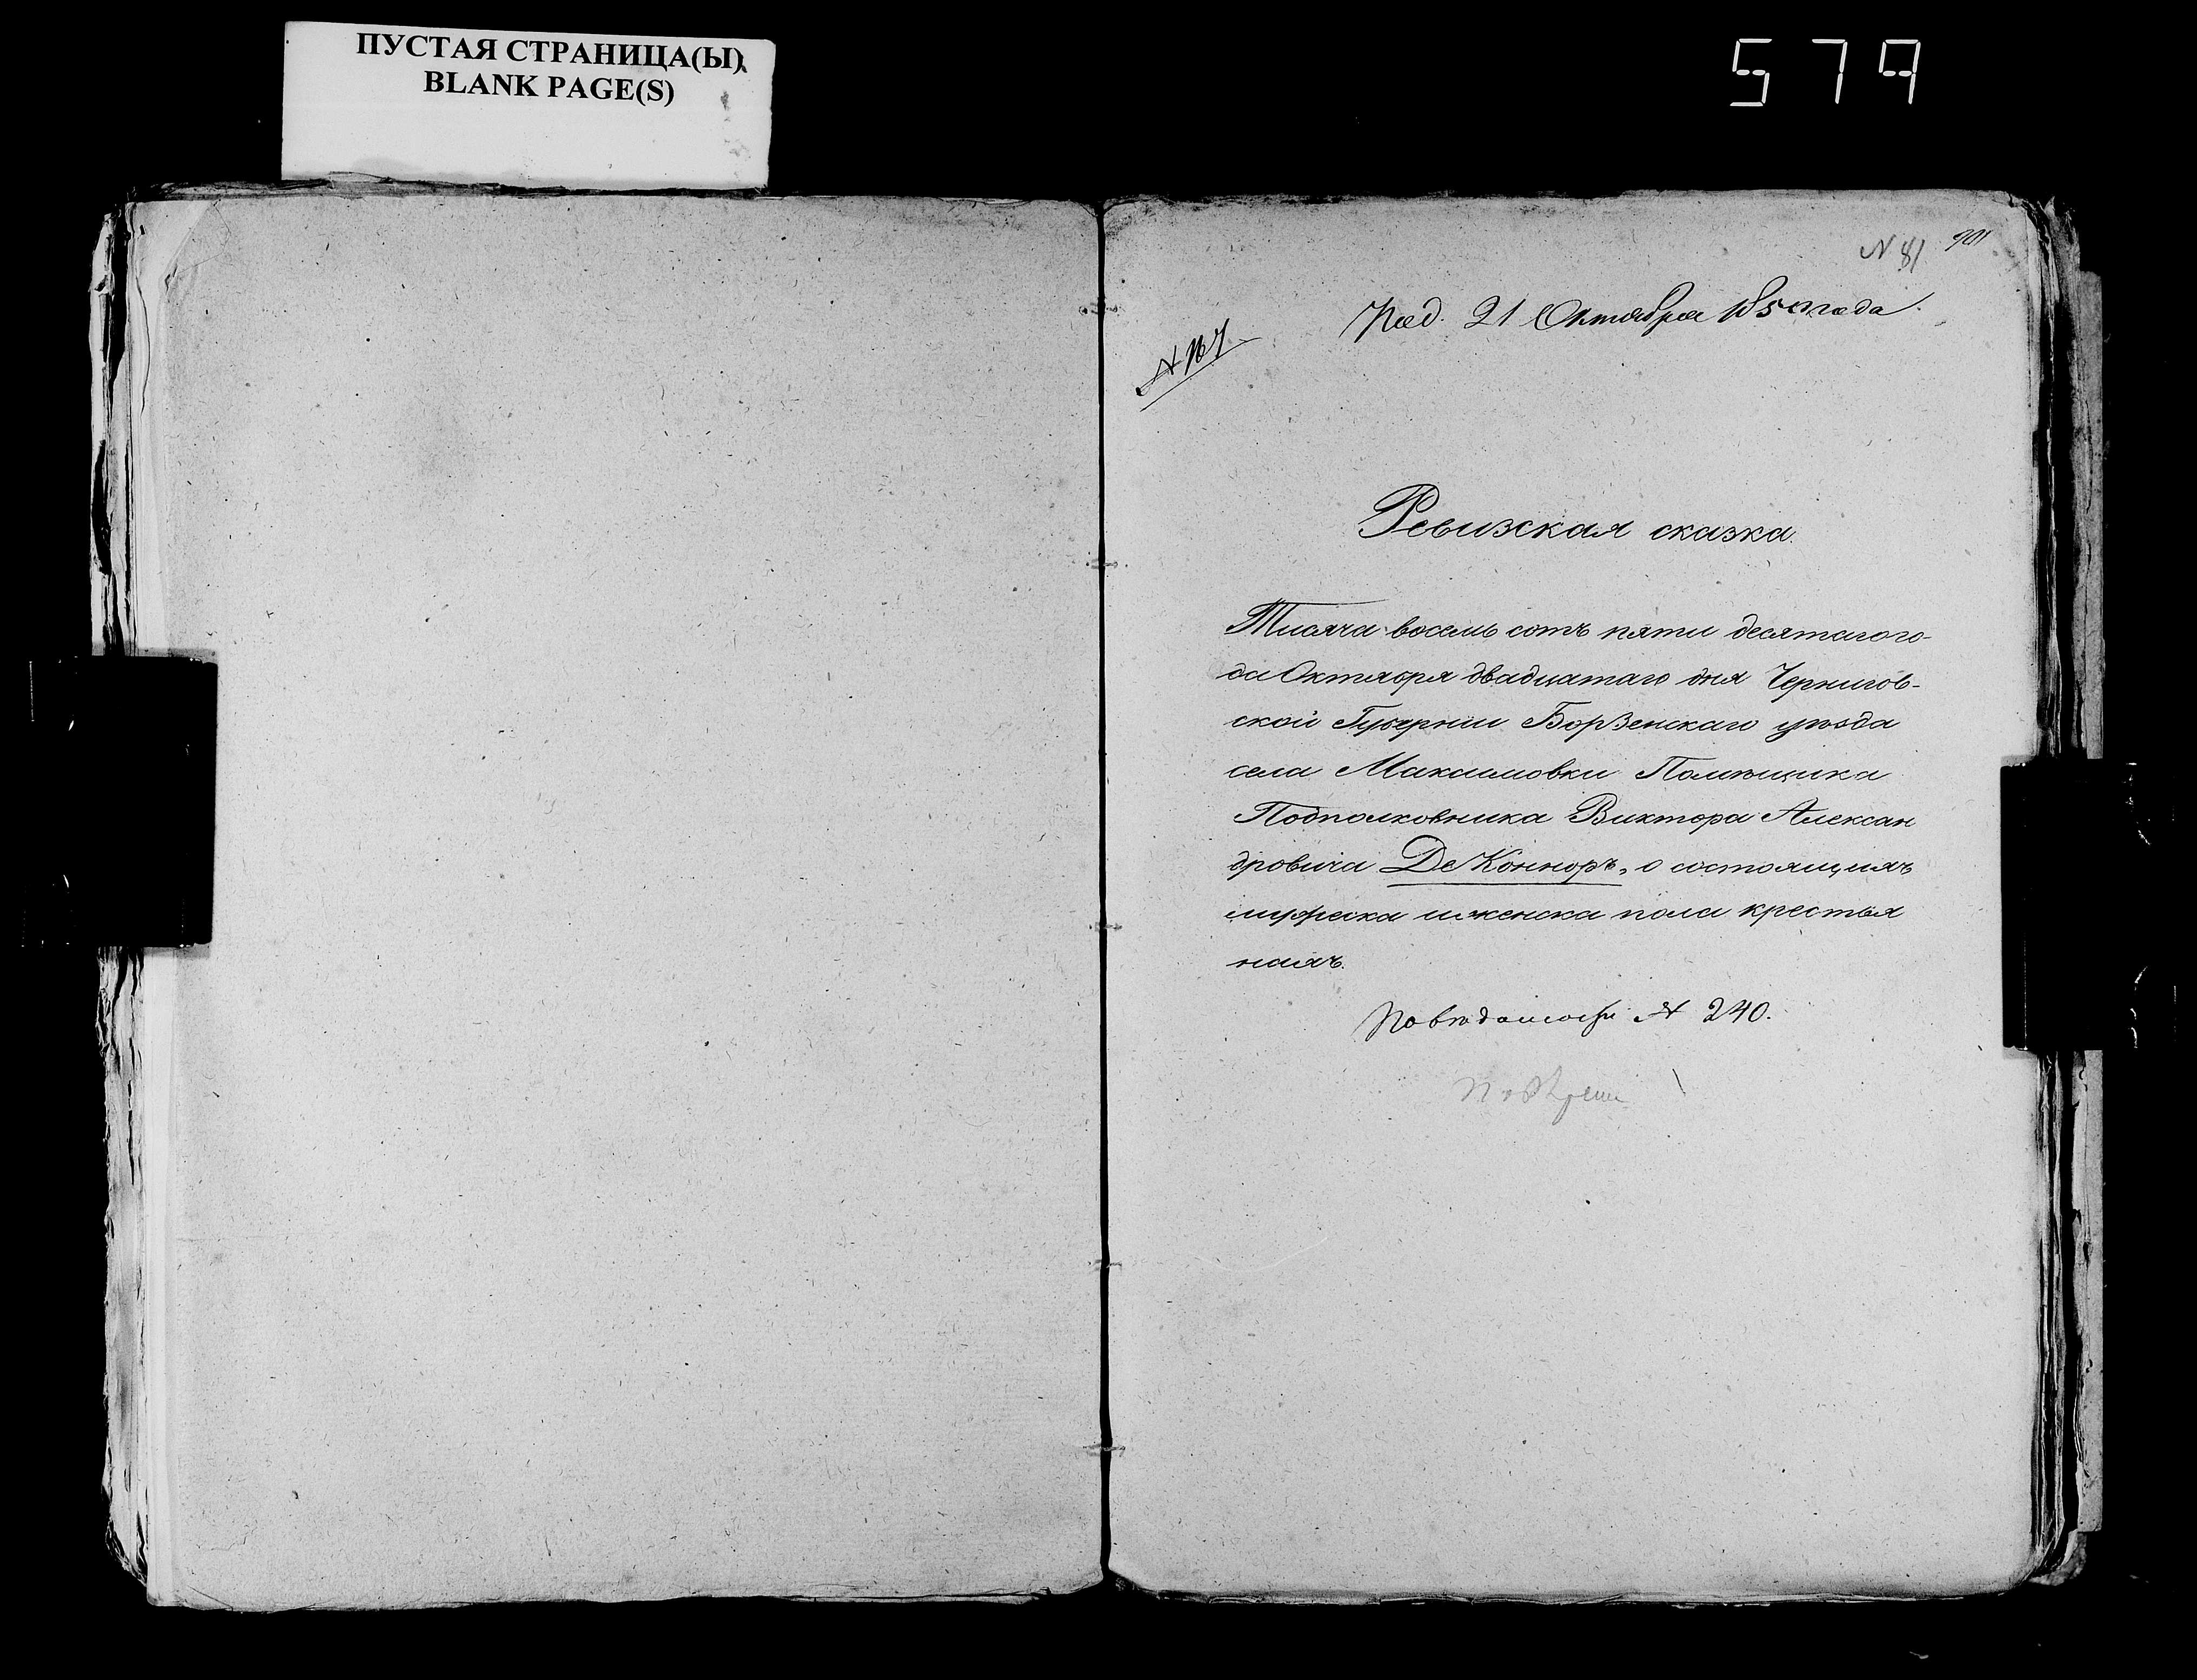 ПУСТАЯ СТРАНИЦА(Ы)
BLANK PAGE(S)
579
N 81 901
Под. 21 Октября 1850 года.
Ревизская сказка.
Тисяча восемь сотъ пяти десятаго го-
да Октября двадцатаго дня Чернигов-
ской Губерніи Борзенскаго уѣзда
села Максимовки Помѣщика
Подполковника Виктора Алексан
дровича Де Конноръ, о состоящихъ
мужеска и женска пола крестья
нахъ.
По вѣдомости № 240.